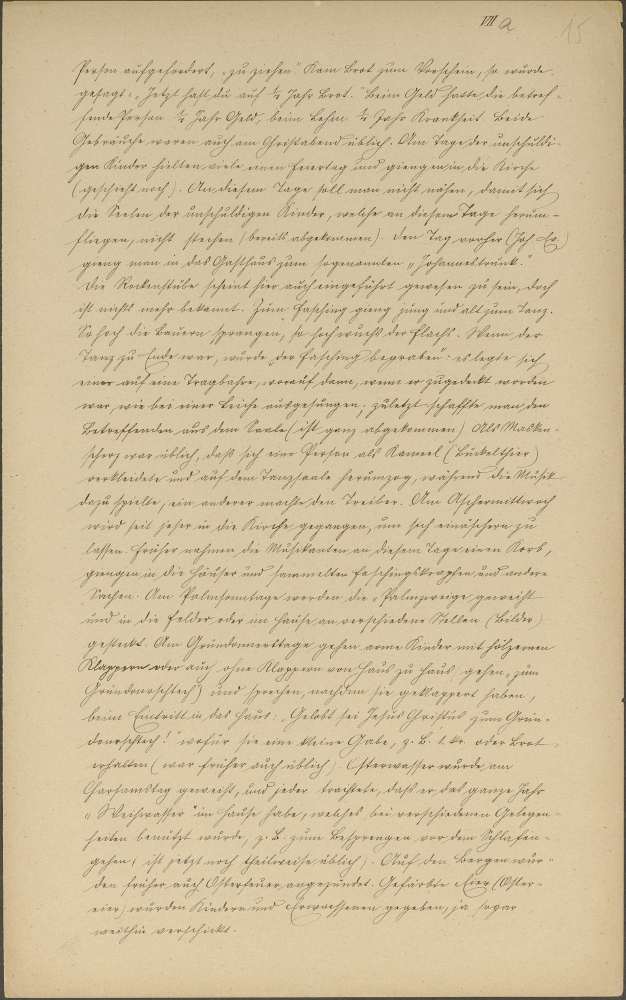 VII a 15
Person aufgefordert, „zu ziehen" Kam Brot zum Vorschein, so wurde
gesagt: „Jetzt hast du auf ½ Jahr Brot." Beim Geld hatte die betref-
fende Person ½ Jahr Geld, beim Lehm ½ Jahr Krankheit. Beide
Gebräuche waren auch am Christabend üblich. Am Tage der unschuldi-
gen Kinder hielten viele einen Feiertag und giengen in die Kirche
(geschieht noch). An diesem Tage soll man nicht nähen, damit sich
die Seelen der unschuldigen Kinder, welche an diesem Tage herum-
fliegen, nicht stechen (bereits abgekommen). Den Tag vorher (Joh. Ev.)
gieng man in das Gasthaus zum sogenannten „Johannestrunk."
Die Rockenstube scheint hier auch eingeführt gewesen zu sein, doch
ist nichts mehr bekannt. Zum Fasching gieng jung und alt zum Tanz.
So hoch die Bauern sprangen, so hoch wuchs der Flachs. Wenn der
Tanz zu Ende war, wurde „der Fasching begraben": es legte sich
einer auf eine Tragbahre, worauf dann, wenn er zugedeckt worden
war, wie bei einer Leiche ausgesungen; zuletzt schaffte man den
Betreffenden aus dem Saale (ist ganz abgekommen). Als Masken-
scherz war üblich, daß sich eine Person als Kameel (Buckelthier)
verkleidete und auf dem Tanzsaale herumzog, während die Musik
dazu spielte, ein anderer machte den Treiber. Am Aschermittwoch
wird seit jeher in die Kirche gegangen, um sich einäschern zu
lassen. Früher nahmen die Musikanten an diesem Tage einen Korb,
giengen in die Häuser und sammelten Faschingskrapfen und andere
Sachen. Am Palmsonntage werden die Palmzweige geweiht
und in die Felder oder im Hause an verschiedene Stellen (Bilder)
gesteckt. Am Gründonnerstage gehen arme Kinder mit hölzernen
Klappern oder auch ohne Klappern von Haus zu Haus gehen „zum
Gründonrschtech") und sprechen, nachdem sie geklappert haben,
beim Eintritt in das Haus: „Gelobt sei Jesus Christus zum Grün-
donrschtech!" wofür sie eine kleine Gabe, z. B. 1 kr. oder Brot
erhalten (war früher auch üblich). Osterwasser wurde am
Charsamstag geweiht, und jeder trachtete, daß er das ganze Jahr
„Weihwasser" im Hause habe, welches bei verschiedenen Gelegen-
heiten benützt wurde, z. B. zum Besprengen vor dem Schlafen-
gehen (ist jetzt noch theilweise üblich). Auf den Bergen wur-
den früher auch Osterfeuer angezündet. Gefärbte Eier (Oster-
eier) wurden Kindern und Erwachsenen gegeben, ja sogar
weithin verschickt.